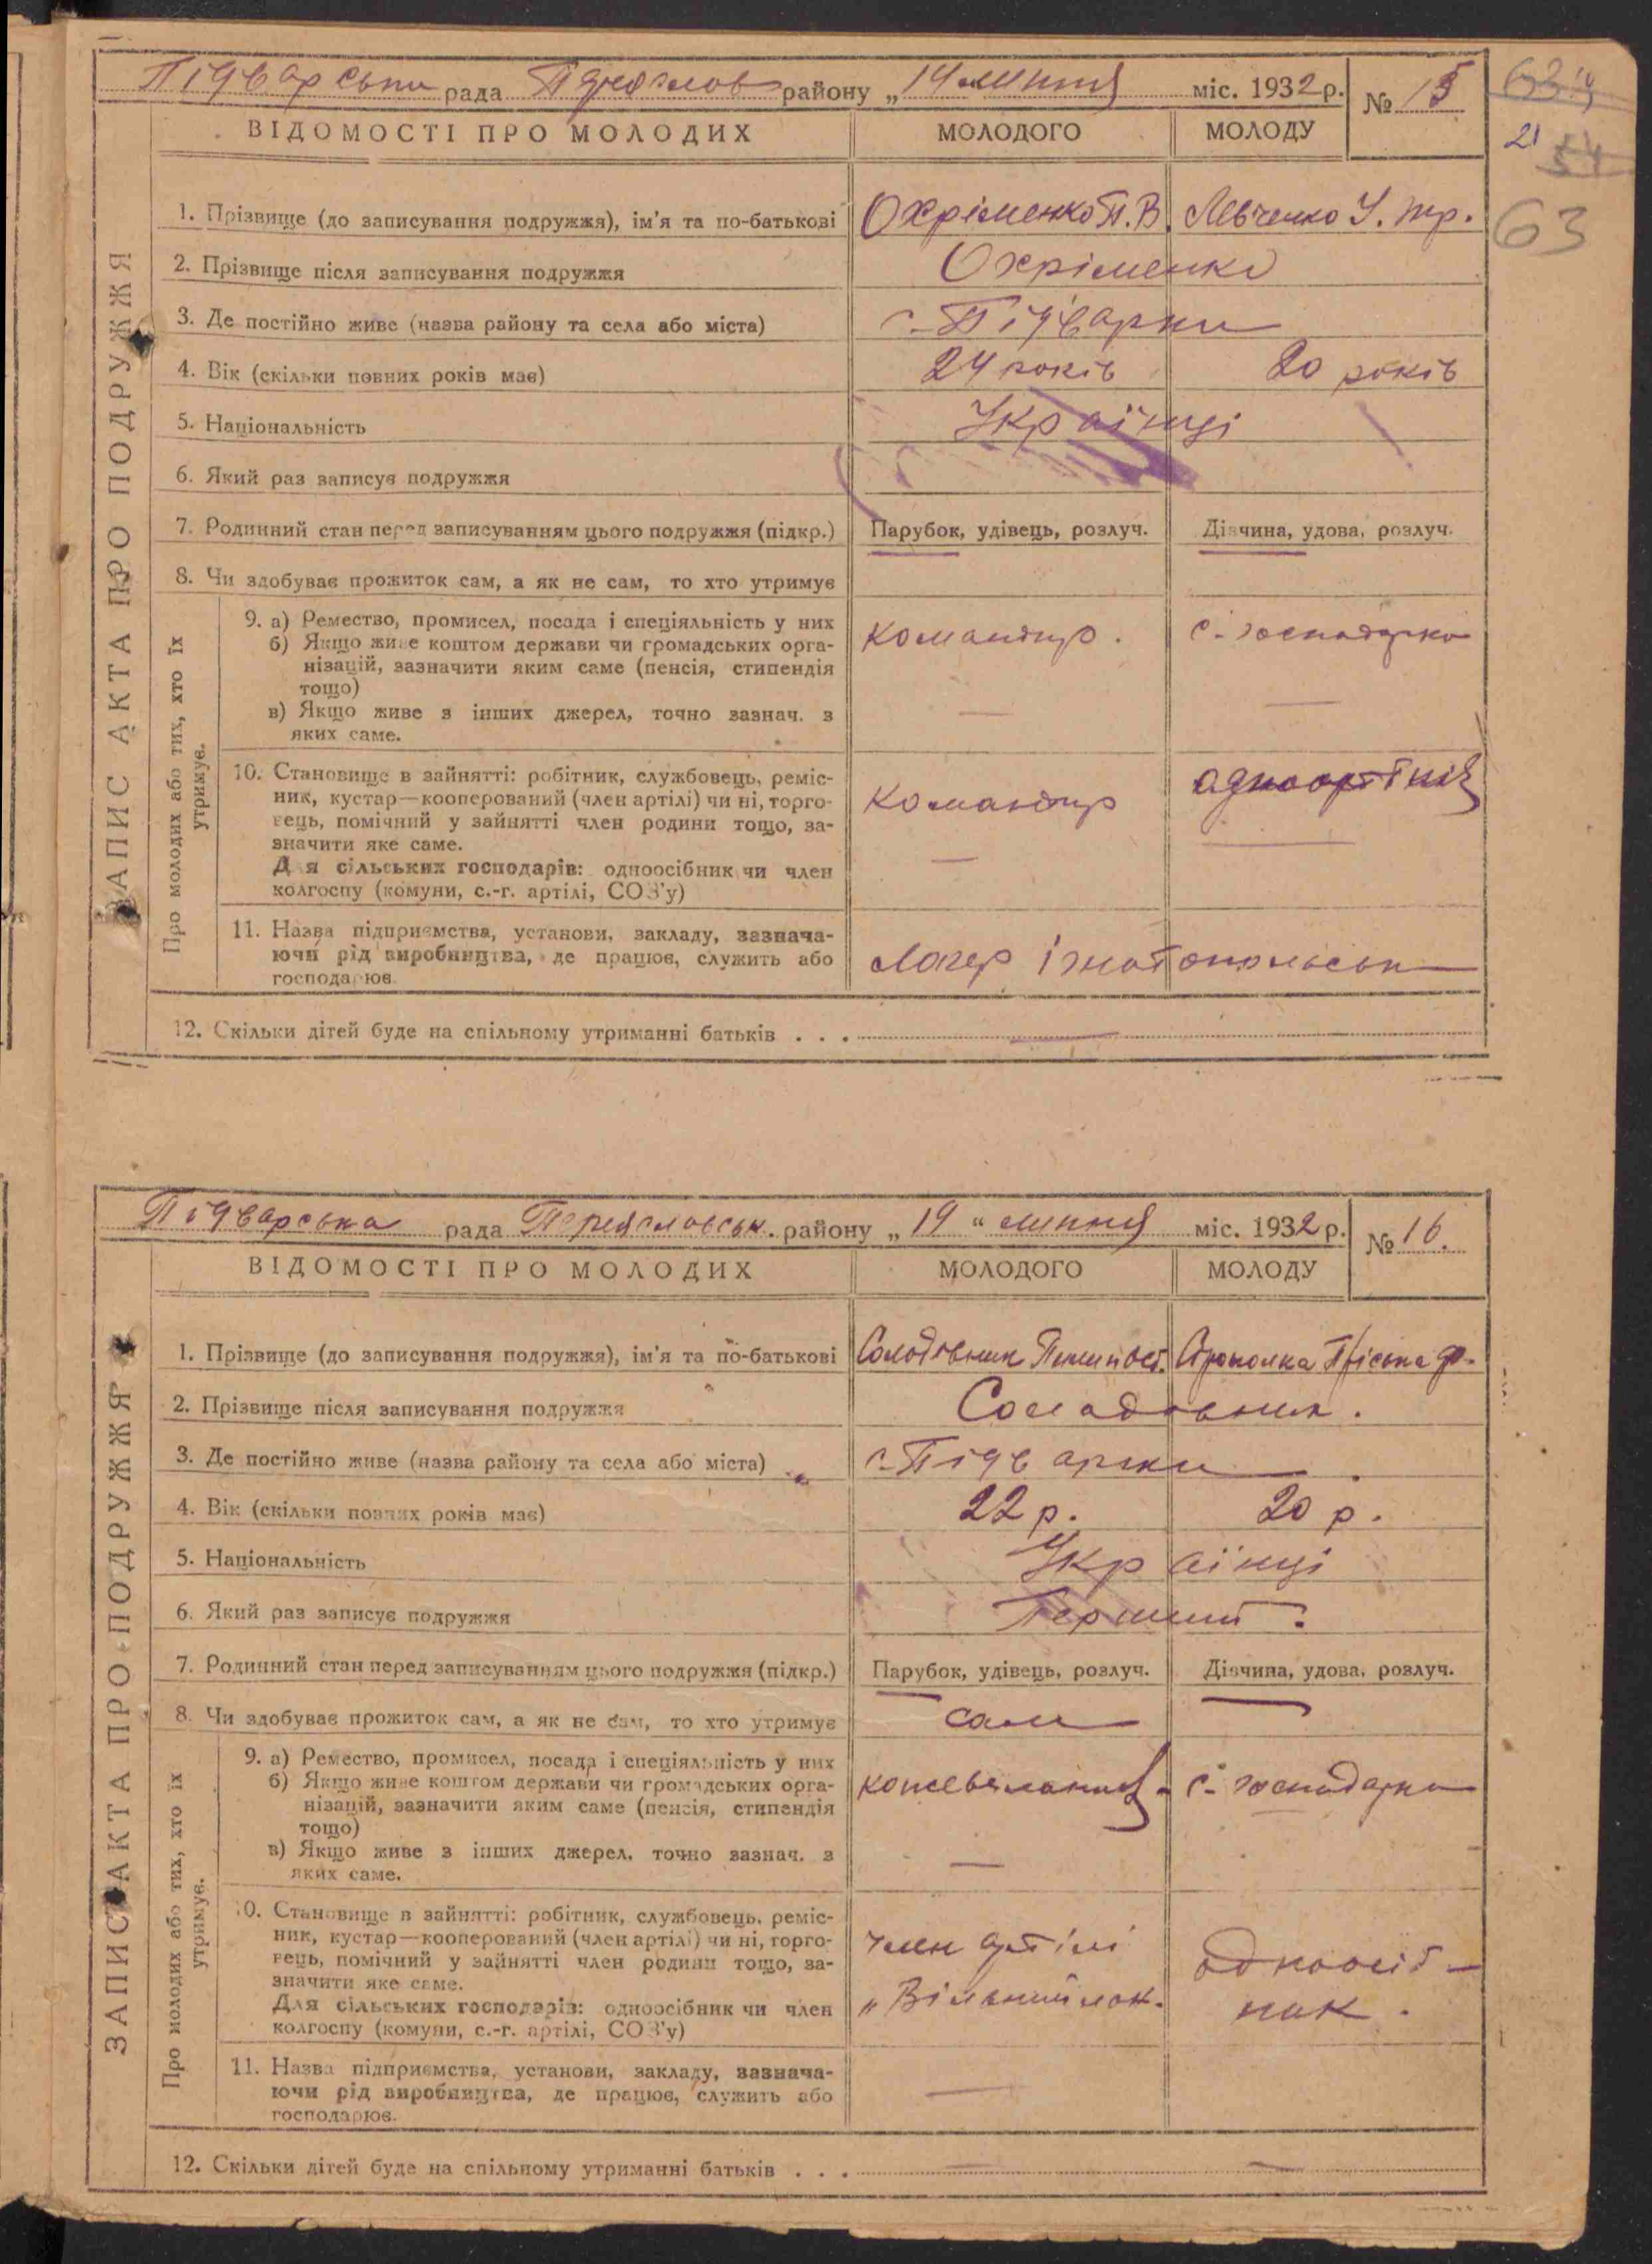 Підварська рада Переяслов району „14 липня міс. 1932 р. № 15
21
63
ВІДОМОСТІ ПРО МОЛОДИХ МОЛОДОГО МОЛОДУ
ЗАПИС АКТА ПРО ПОДРУЖЖЯ
1. Прізвище (до записування подружжя), ім'я та по-батькові Охріменко П. В. Левченко У. тр.
2. Прізвище після записування подружжя Охріменко
3. Де постійно живе (назва району та села або міста) с. Підварки
4. Вік (скільки повних років має) 24 років 20 років
5. Національність Українці
6. Який раз записує подружжя
7. Родинний стан перед записуванням цього подружжя (підкр.) Парубок, удівець, розлуч. Дівчина, удова, розлуч.
8. Чи здобуває прожиток сам, а як не сам, то хто утримує
Про молодих або тих, хто їх утримує.
9. а) Ремество, промисел, посада і спеціяльність у них командир. с-господарка
б) Якщо живе коштом держави чи громадських орга-
нізацій, зазначити яким саме (пенсія, стипендія
тощо)
в) Якщо живе з інших джерел, точно зазнач. з
яких саме.
10. Становище в зайнятті: робітник, службовець, реміс-
ник, кустар—кооперований (член артілі) чи ні, торго- командир
вець, помічний у зайнятті член родини тощо, за-
значити яке саме.
Для сільських господарів: одноосібник чи член
колгоспу (комуни, с.-г. артілі, СОЗ'у)
11. Назва підприємства, установи, закладу, зазнача-
ючи рід виробництва, де працює, служить або Лагер
господарює.
12. Скільки дітей буде на спільному утриманні батьків . . .
Підварська рада Переяславськ. району „ 19 “ липня міс. 1932 р. № 16.
ВІДОМОСТІ ПРО МОЛОДИХ МОЛОДОГО МОЛОДУ
ЗАПИС АКТА ПРО ПОДРУЖЖЯ
1. Прізвище (до записування подружжя), ім'я та по-батькові Солодовник Пилип Ост. Пріська
2. Прізвище після записування подружжя Соладовник.
3. Де постійно живе (назва району та села або міста) с. Підварки
4. Вік (скільки повних років має) 22 р. 20 р.
5. Національність Українці
6. Який раз записує подружжя Перший.
7. Родинний стан перед записуванням цього подружжя (підкр.) Парубок, удівець, розлуч. Дівчина, удова, розлуч.
8. Чи здобуває прожиток сам, а як не сам, то хто утримує сам
Про молодих або тих, хто їх утримує.
9. а) Ремество, промисел, посада і спеціяльність у них
б) Якщо живе коштом держави чи громадських орга- с-господарка
нізацій, зазначити яким саме (пенсія, стипендія
тощо)
в) Якщо живе з інших джерел, точно зазнач. з
яких саме.
10. Становище в зайнятті: робітник, службовець, реміс-
ник, кустар—кооперований (член артілі) чи ні, торго- член артілі одноосіб-
вець, помічний у зайнятті член родини тощо, за-
значити яке саме. „Вільний ник.
Для сільських господарів: одноосібник чи член
колгоспу (комуни, с.-г. артілі, СОЗ'у)
11. Назва підприємства, установи, закладу, зазнача-
ючи рід виробництва, де працює, служить або
господарює.
12. Скільки дітей буде на спільному утриманні батьків . . .